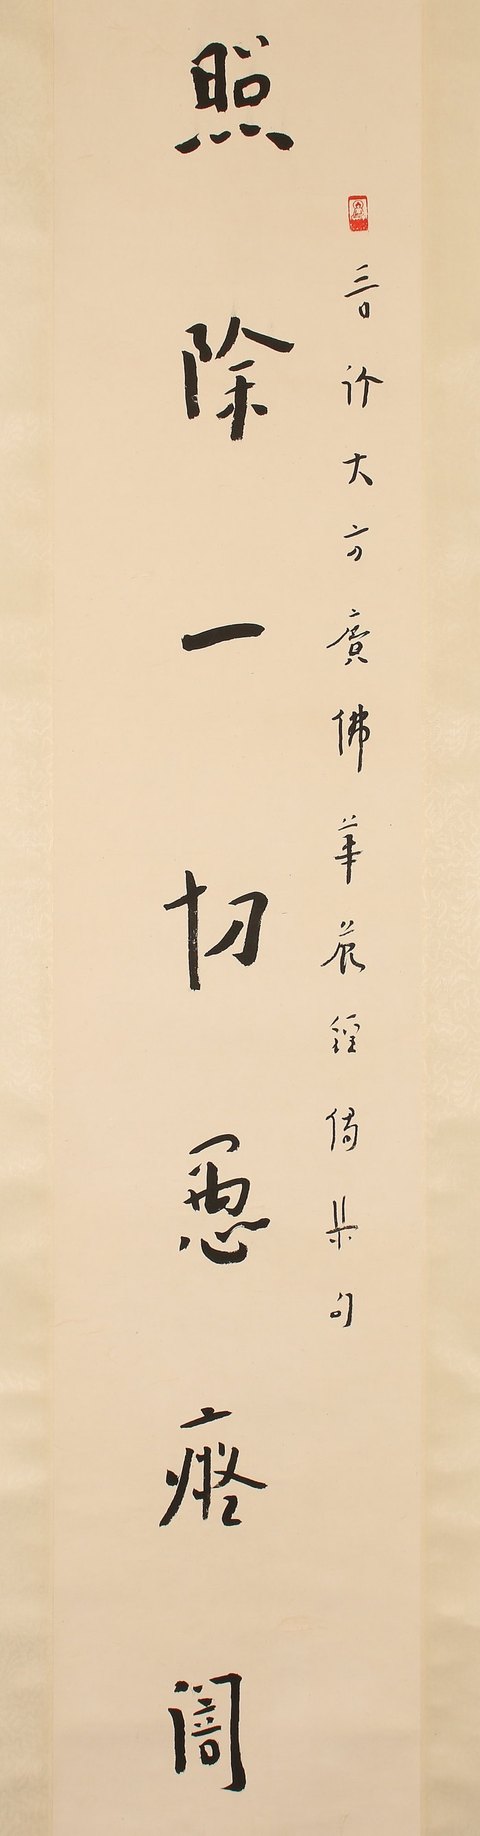 晉譯大方廣佛華嚴經偈集句
照除一切愚癡闇